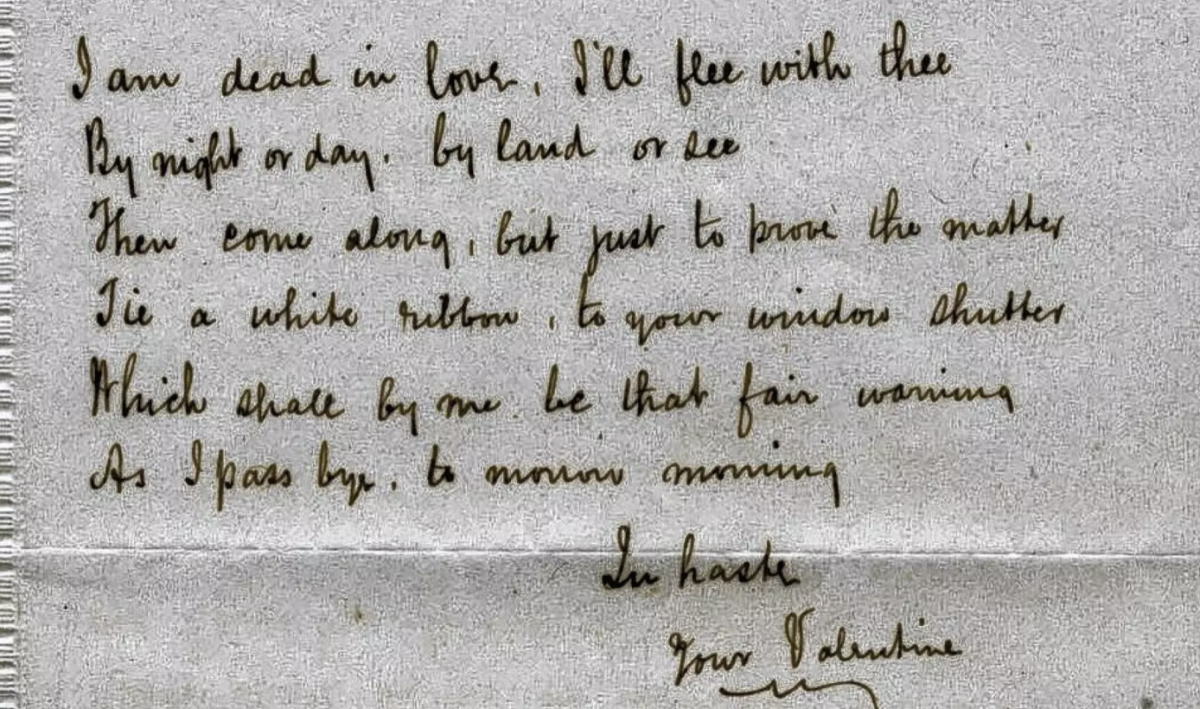 I am dead in love, I'll flee with thee
By night or day. by land or see
Then come along, but just to prove the matter
Tie a white ribbon, to your window shutter
Which shall by me be that fair warning
As I pass bye. to morrow morning
In haste
Your Valentine